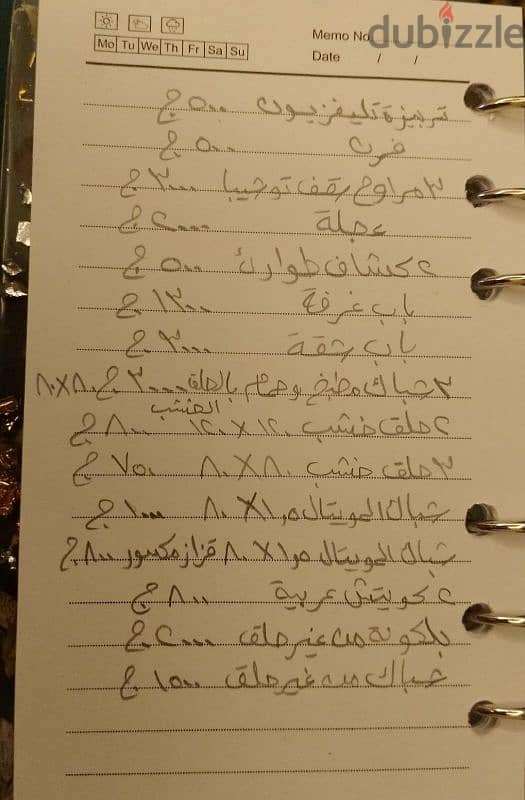 Memo No
Mo Tu We Th Fr Sa Su
Date / /
dubizzle
تربيزة تليفزيون ٥٠٠ ج
فرن ٥٠٠ ج
٣ مراوح سقف توشيبا ٣٠٠٠ ج
عجلة ٢٠٠٠ ج
٢ كشاف طوارئ ٥٠٠ ج
باب غرفة ١٣٠٠ ج
باب شقة ٣٠٠٠ ج
٣ شباك مطبخ وحمام بالحلق الخشب ٣٠٠٠ ج ٨٠X٨٠
٢ حلق خشب ١٢٠X١٢٠ ٨٠٠ ج
٣ حلق خشب ٨٠X٨٠ ٧٥٠ ج
شباك الوميتال ١,٥X٨٠ ١٠٠٠ ج
شباك الوميتال ١,٥X٨٠ قزاز مكسور ٨٠٠ ج
٤ كويتش عربية ٨٠٠ ج
بلكونة من غير حلق ٢٠٠٠ ج
شباك من غير حلق ١٥٠٠ ج